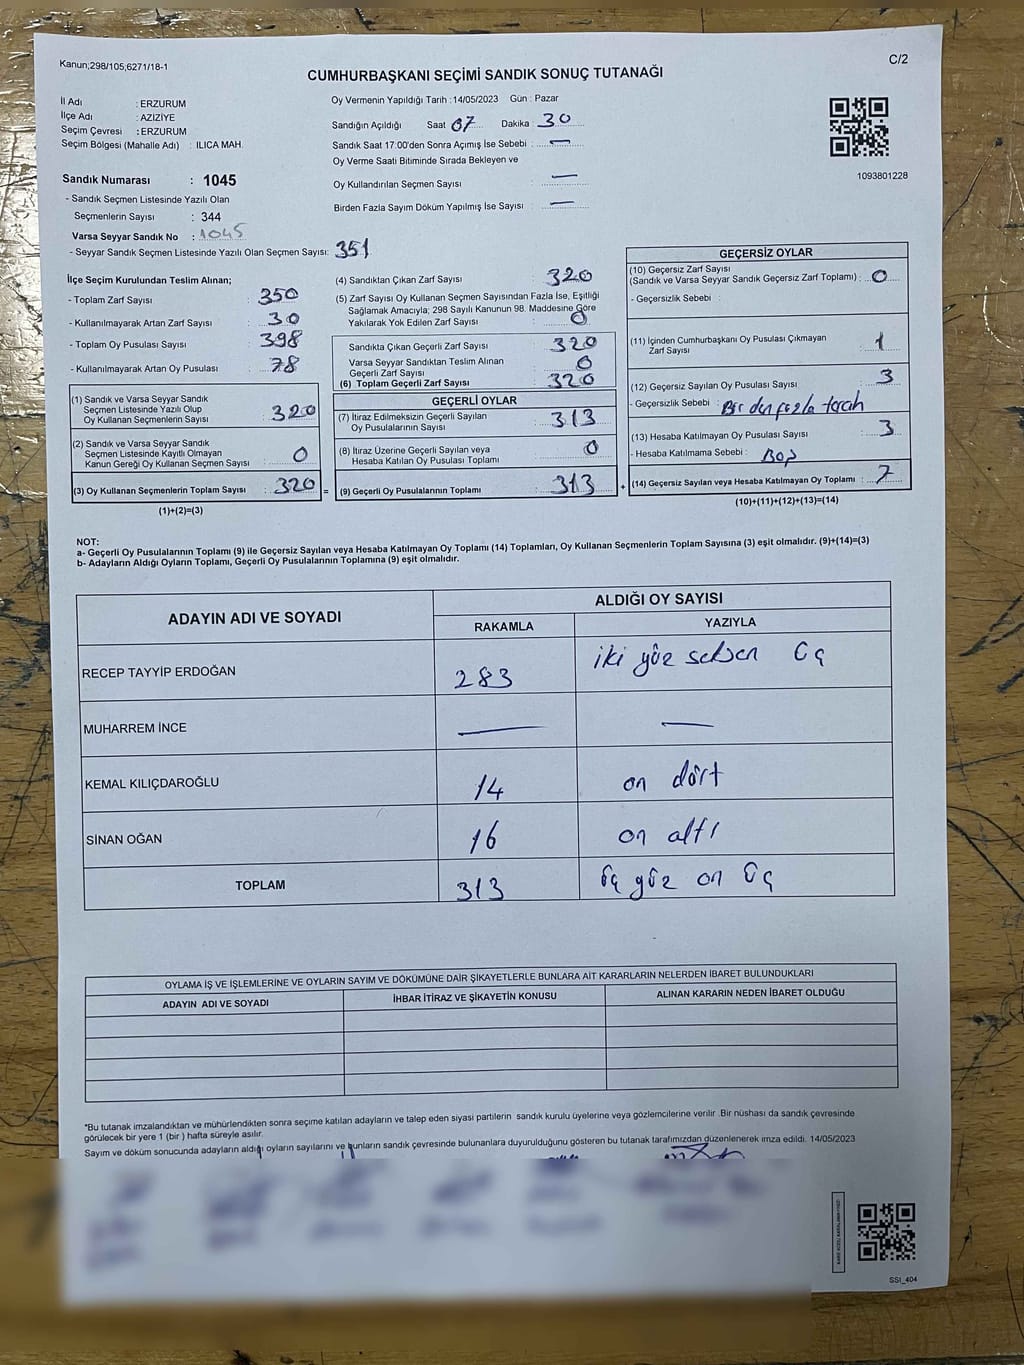 Kanun;298/105;6271/18-1
C/2
CUMHURBAŞKANI SEÇİMİ SANDIK SONUÇ TUTANAĞI
İl Adı : ERZURUM
İlçe Adı : AZİZİYE
Seçim Çevresi : ERZURUM
Seçim Bölgesi (Mahalle Adı) : ILICA MAH.
Sandık Numarası : 1045
- Sandık Seçmen Listesinde Yazılı Olan
Seçmenlerin Sayısı : 344
Varsa Seyyar Sandık No : 1045
- Seyyar Sandık Seçmen Listesinde Yazılı Olan Seçmen Sayısı: 351
Oy Vermenin Yapıldığı Tarih : 14/05/2023 Gün : Pazar
Sandığın Açıldığı Saat 07 Dakika : 30
Sandık Saat 17:00'den Sonra Açımış İse Sebebi : —
Oy Verme Saati Bitiminde Sırada Bekleyen ve
Oy Kullandırılan Seçmen Sayısı : —
Birden Fazla Sayım Döküm Yapılmış İse Sayısı : —
1093801228
İlçe Seçim Kurulundan Teslim Alınan;
- Toplam Zarf Sayısı : 350
- Kullanılmayarak Artan Zarf Sayısı : 30
- Toplam Oy Pusulası Sayısı : 398
- Kullanılmayarak Artan Oy Pusulası : 78
(1) Sandık ve Varsa Seyyar Sandık
Seçmen Listesinde Yazılı Olup
Oy Kullanan Seçmenlerin Sayısı : 320
(2) Sandık ve Varsa Seyyar Sandık
Seçmen Listesinde Kayıtlı Olmayan
Kanun Gereği Oy Kullanan Seçmen Sayısı : 0
(3) Oy Kullanan Seçmenlerin Toplam Sayısı : 320 =
(1)+(2)=(3)
(4) Sandıktan Çıkan Zarf Sayısı : 320
(5) Zarf Sayısı Oy Kullanan Seçmen Sayısından Fazla İse, Eşitliği
Sağlamak Amacıyla; 298 Sayılı Kanunun 98. Maddesine Göre
Yakılarak Yok Edilen Zarf Sayısı : 0
Sandıkta Çıkan Geçerli Zarf Sayısı : 320
Varsa Seyyar Sandıktan Teslim Alınan
Geçerli Zarf Sayısı : 0
(6) Toplam Geçerli Zarf Sayısı : 320
GEÇERLİ OYLAR
(7) İtiraz Edilmeksizin Geçerli Sayılan
Oy Pusulalarının Sayısı : 313
(8) İtiraz Üzerine Geçerli Sayılan veya
Hesaba Katılan Oy Pusulası Toplamı : 0
(9) Geçerli Oy Pusulalarının Toplamı : 313 +
GEÇERSİZ OYLAR
(10) Geçersiz Zarf Sayısı
(Sandık ve Varsa Seyyar Sandık Geçersiz Zarf Toplamı) : 0
- Geçersizlik Sebebi :
(11) İçinden Cumhurbaşkanı Oy Pusulası Çıkmayan
Zarf Sayısı : 1
(12) Geçersiz Sayılan Oy Pusulası Sayısı : 3
- Geçersizlik Sebebi : Bir den fazla tercih
(13) Hesaba Katılmayan Oy Pusulası Sayısı : 3
- Hesaba Katılmama Sebebi : Boş
(14) Geçersiz Sayılan veya Hesaba Katılmayan Oy Toplamı : 7
(10)+(11)+(12)+(13)=(14)
NOT:
a- Geçerli Oy Pusulalarının Toplamı (9) ile Geçersiz Sayılan veya Hesaba Katılmayan Oy Toplamı (14) Toplamları, Oy Kullanan Seçmenlerin Toplam Sayısına (3) eşit olmalıdır. (9)+(14)=(3)
b- Adayların Aldığı Oyların Toplamı, Geçerli Oy Pusulalarının Toplamına (9) eşit olmalıdır.
ADAYIN ADI VE SOYADI ALDIĞI OY SAYISI
RAKAMLA YAZIYLA
RECEP TAYYİP ERDOĞAN 283 iki yüz seksen üç
MUHARREM İNCE — —
KEMAL KILIÇDAROĞLU 14 on dört
SİNAN OĞAN 16 on altı
TOPLAM 313 üç yüz on üç
OYLAMA İŞ VE İŞLEMLERİNE VE OYLARIN SAYIM VE DÖKÜMÜNE DAİR ŞİKAYETLERLE BUNLARA AİT KARARLARIN NELERDEN İBARET BULUNDUKLARI
ADAYIN ADI VE SOYADI İHBAR İTİRAZ VE ŞİKAYETİN KONUSU ALINAN KARARIN NEDEN İBARET OLDUĞU
*Bu tutanak imzalandıktan ve mühürlendikten sonra seçime katılan adayların ve talep eden siyasi partilerin sandık kurulu üyelerine veya gözlemcilerine verilir .Bir nüshası da sandık çevresinde
görülecek bir yere 1 (bir ) hafta süreyle asılır.
Sayım ve döküm sonucunda adayların aldığı oyların sayılarını ve bunların sandık çevresinde bulunanlara duyurulduğunu gösteren bu tutanak tarafımızdan düzenlenerek imza edildi. 14/05/2023
SSI_404